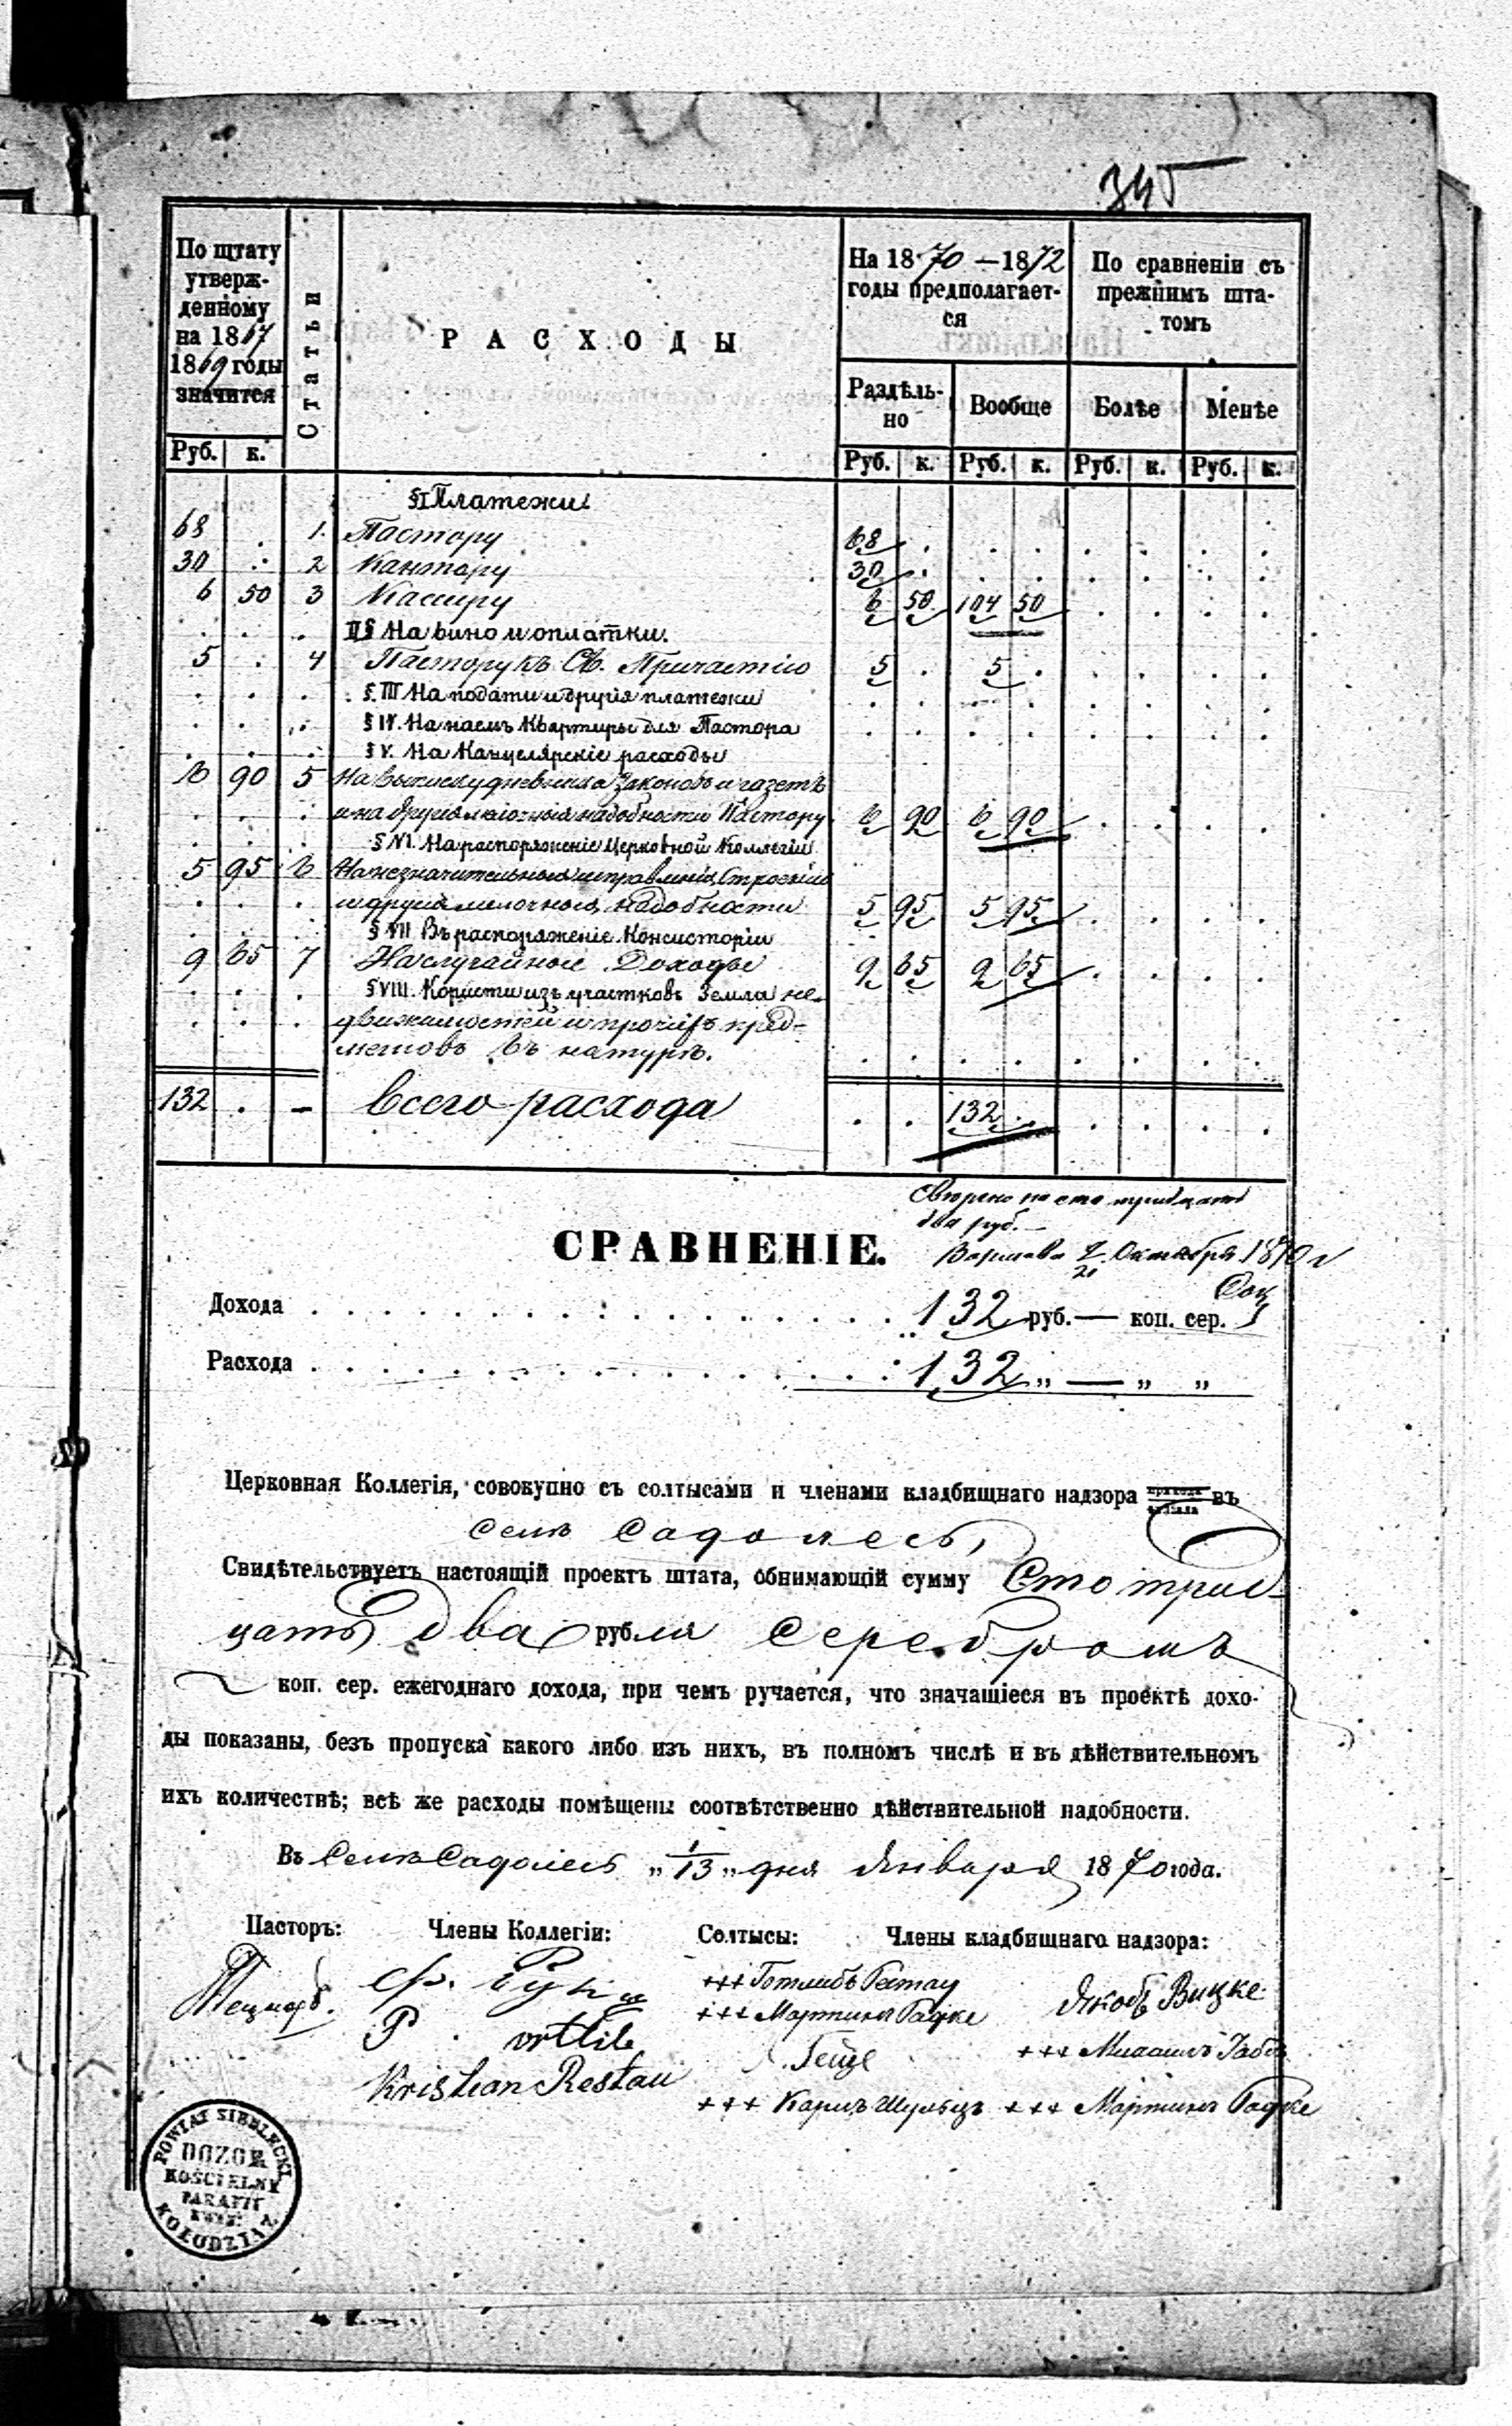 345
По штату утверж-
денному
на 1867
1869 годы
значится
Статьи
РАСХОДЫ
На 1870 — 1872
годы предполагает-
ся
По сравненіи съ
прежнимъ шта-
томъ
Раздѣль-
но
Вообще
Болѣе
Менѣе
Руб. к. Руб. к. Руб. к. Руб. к. Руб. к.
§ I Платежи
68 . 1. Пастору 68 .
30 . 2 Кантору 30 .
6 50 3 Кассиру 6 50 104 50
II § На вино и оплатки.
5 . 4 Пастору къ Св. Причастію 5 . 5 .
§ III На подати и другія платежи
§ IV. На наемъ Квартиры для Пастора
§ V. На Канцелярскіе расходы
6 90 5 На выписку дневника Законовъ и газетъ
и на другія надобности Пастору 6 90 6 90
§ VI. На распоряженіе Церковной Коллегіи
5 95 6 На незначительныя исправленія Строеній
и другія мелочныя надобности 5 95 5 95
§ VII Въ распоряженіе Консисторіи
9 65 7 На случайные Доходы 9 65 9 65
§ VIII. Користи изъ участковъ Земли не-
движимостей и прочихъ пред-
метовъ въ натурѣ.
132 . — Всего расхода 132 .
на сто тридцать
два руб. —
СРАВНЕНІЕ.
Варшава 9/21 Октября 1870 г
Дохода 132 руб. — коп. сер.
Расхода 132 „ — „ „
Церковная Коллегія, совокупно съ солтысами и членами кладбищнаго надзора прихода филіала въ
селѣ Садолесь,
Свидѣтельствуетъ настоящій проектъ штата, обнимающій сумму Сто трид-
цать два рубля серебромъ
коп. сер. ежегоднаго дохода, при чемъ ручается, что значащіеся въ проектѣ дохо-
ды показаны, безъ пропуска какого либо изъ нихъ, въ полномъ числѣ и въ дѣйствительномъ
ихъ количествѣ; всѣ же расходы помѣщены соотвѣтственно дѣйствительной надобности.
Въ Селѣ Садолесь „ 1/13 „ дня Января 1870 года.
Пасторъ: Члены Коллегіи: Солтысы: Члены кладбищнаго надзора:
+++ Готлибъ Рестау
Якобъ Вицке
+++ Мартинъ Радке
+++ Михаилъ
Kristian Restau
+++ Карлъ Шульцъ +++ Мартинъ Радке
POWIAT SIEDLECKI
DOZÓR
KOŚCIELNY
PARAFII
EWAN:
KOŁODZIĄŻ